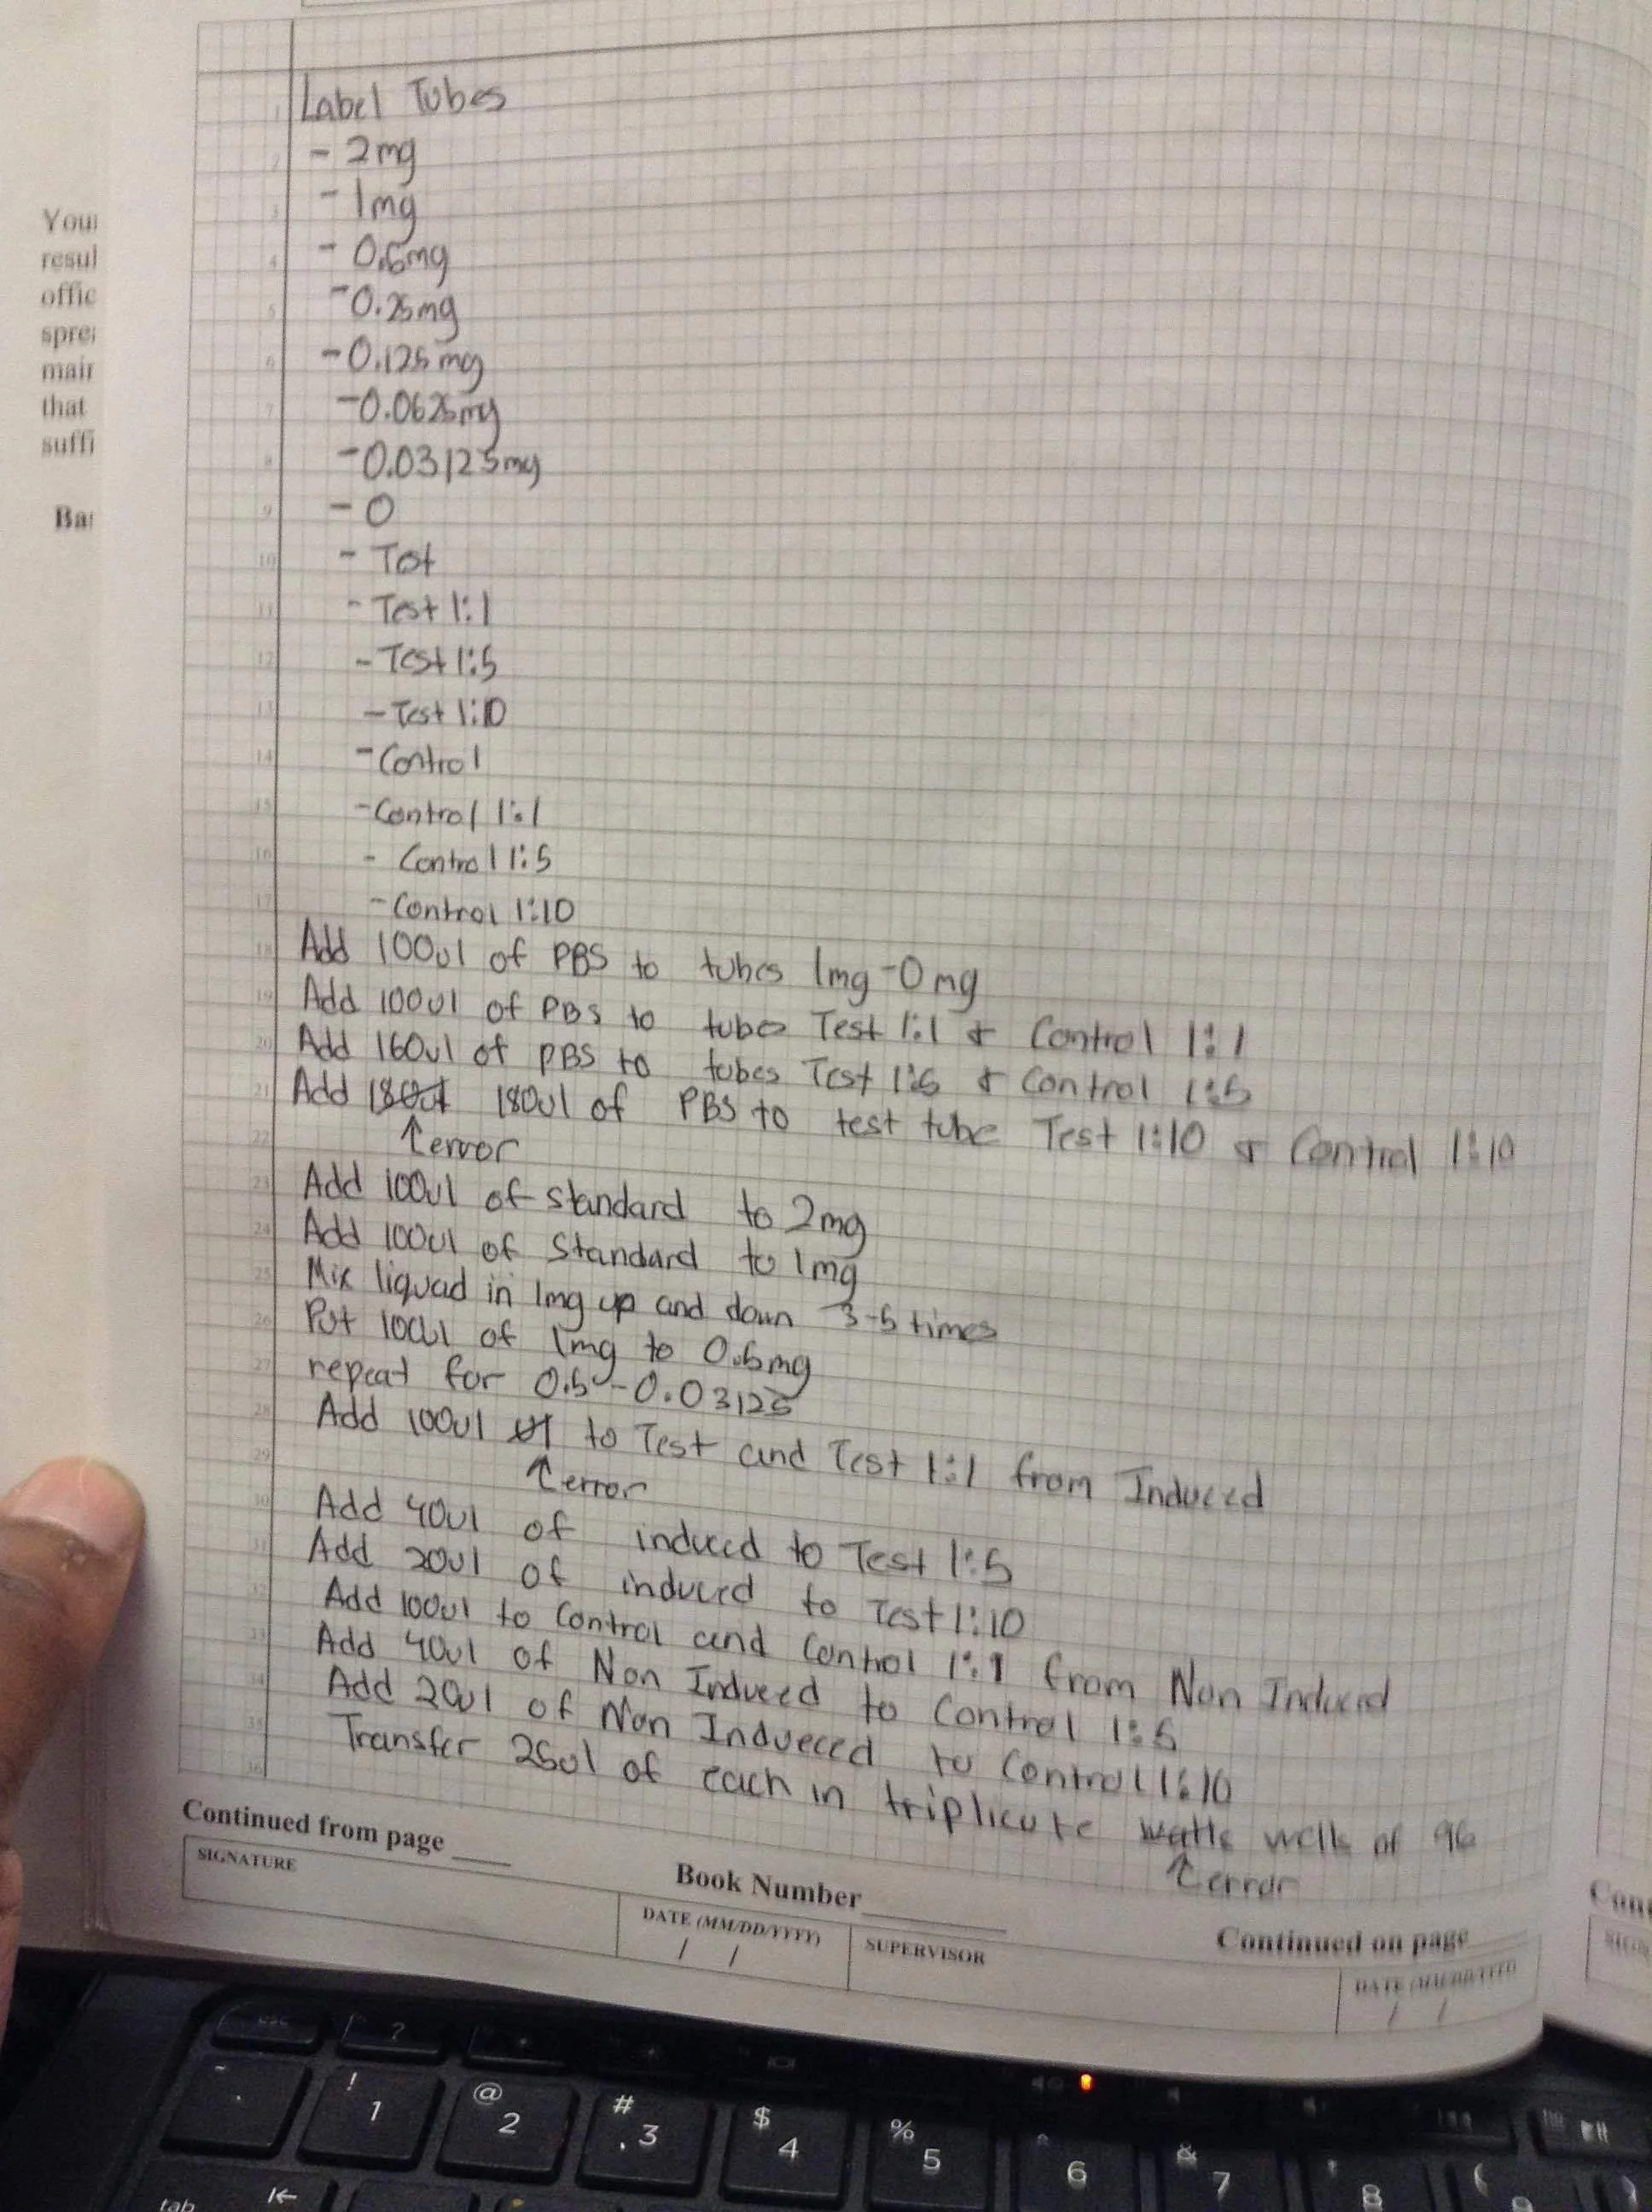 Your
resul
offic
spre
main
that
suffi
Bas
1 Label Tubes
2 - 2mg
3 - 1mg
4 - 0.5mg
5 - 0.25mg
6 - 0.125mg
7 - 0.0625mg
8 - 0.03125mg
9 - 0
10 - Tot
11 - Test 1:1
12 - Test 1:5
13 - Test 1:10
14 - Control
15 - Control 1:1
16 - Control 1:5
17 - Control 1:10
18 Add 100ul of PBS to tubes 1mg-0mg
19 Add 100ul of PBS to tubes Test 1:1 & Control 1:1
20 Add 160ul of PBS to tubes Test 1:5 & Control 1:5
21 Add 180ul 180ul of PBS to test tube Test 1:10 & Control 1:10
22 ↑error
23 Add 100ul of standard to 2mg
24 Add 100ul of Standard to 1mg
25 Mix liquad in 1mg up and down 3-5 times
26 Put 100ul of 1mg to 0.5mg
27 repeat for 0.5-0.03125
28 Add 100ul to Test and Test 1:1 from Induced
29 ↑error
30 Add 40ul of induced to Test 1:5
31 Add 20ul of induced to Test 1:10
32 Add 100ul to Control and Control 1:1 from Non Induced
33 Add 40ul of Non Induced to Control 1:5
34 Add 20ul of Non Indueced to Control 1:10
35 Transfer 25ul of each in triplicate wells of 96
36 ↑error
Continued from page
Book Number
Continued on page
SIGNATURE
DATE (MM/DD/YYYY)
/ /
SUPERVISOR
DATE (MM/DD/YYYY)
/ /
esc ?
! 1 @ 2 # 3 $ 4 % 5 ^ 6 & 7 8 (
tab